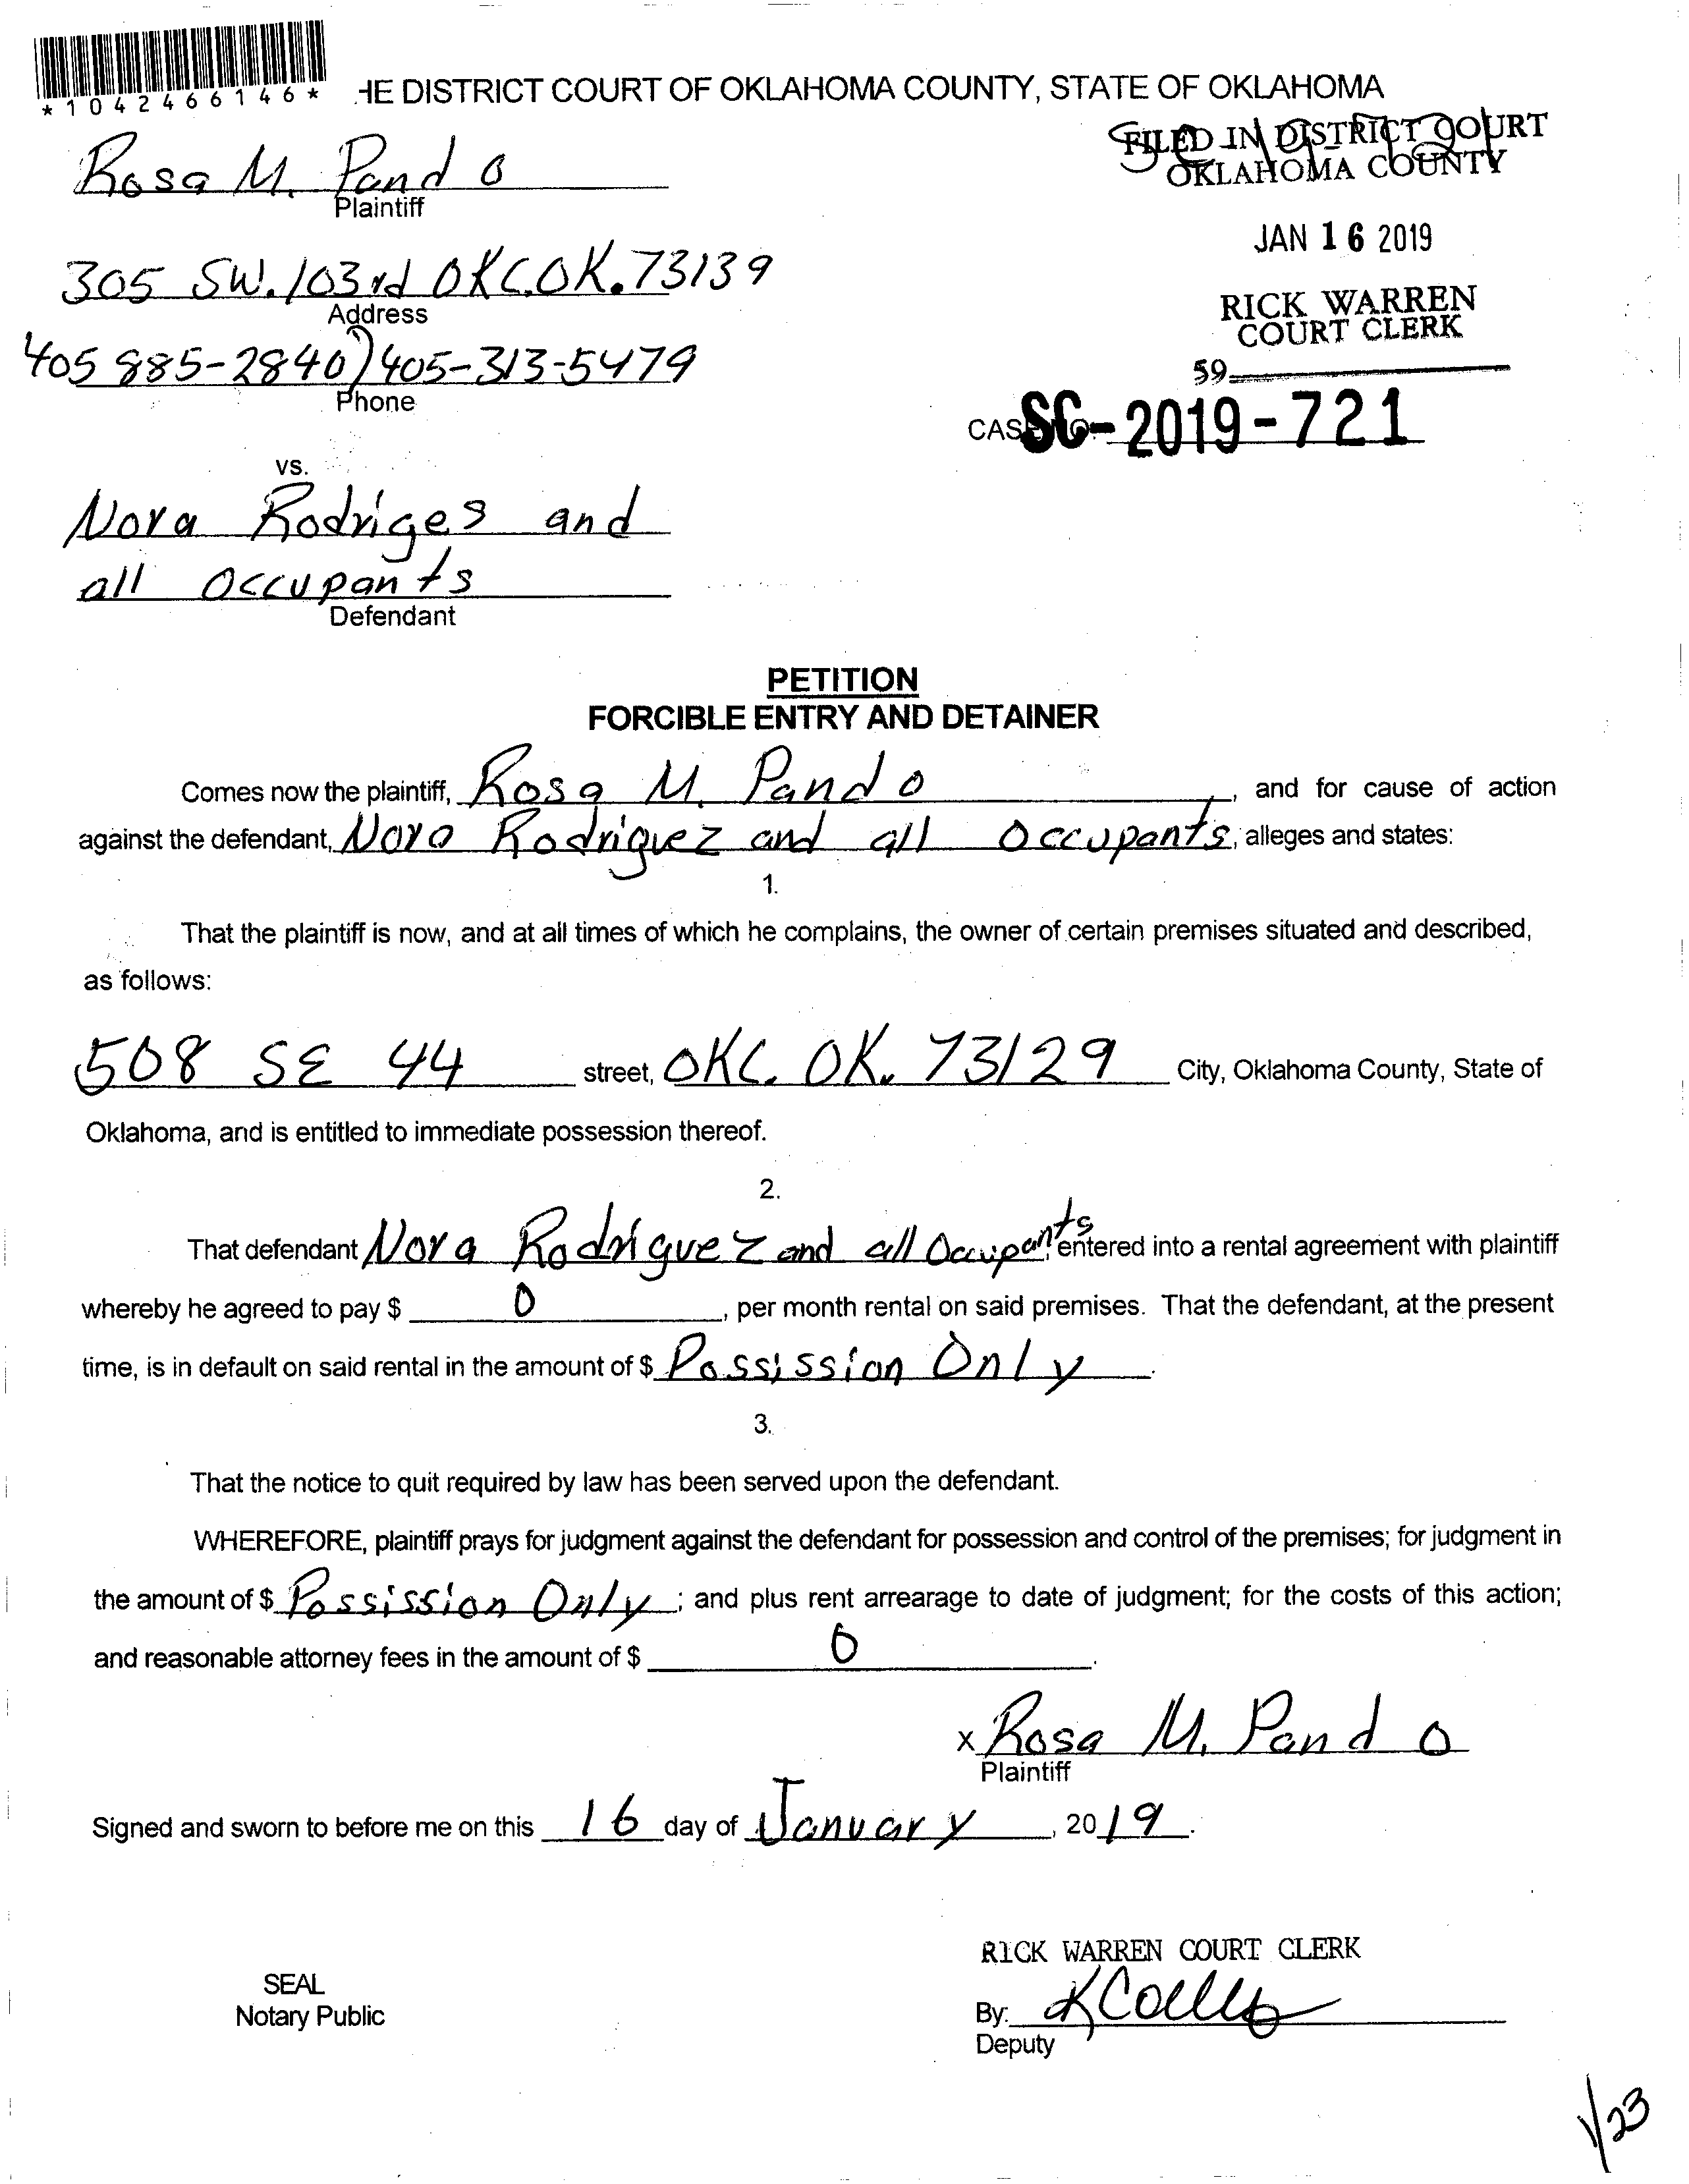 *1042466146*
HE DISTRICT COURT OF OKLAHOMA COUNTY, STATE OF OKLAHOMA
FILED IN DISTRICT COURT
OKLAHOMA COUNTY
Rosa M. Pando
Plaintiff
JAN 16 2019
305 SW. 103rd OKC. OK. 73139
Address
RICK WARREN
COURT CLERK
405 885-2840) 405-313-5479
Phone
59
CASE NO. SC-2019-721
vs.
Nora Rodriges and
all Occupants
Defendant
PETITION
FORCIBLE ENTRY AND DETAINER
Comes now the plaintiff, Rosa M. Pando, and for cause of action
against the defendant, Nora Rodriguez and all Occupants, alleges and states:
1.
That the plaintiff is now, and at all times of which he complains, the owner of certain premises situated and described,
as follows:
508 SE 44 street, OKC. OK. 73129 City, Oklahoma County, State of
Oklahoma, and is entitled to immediate possession thereof.
2.
That defendant Nora Rodriguez and all Occupants entered into a rental agreement with plaintiff
whereby he agreed to pay $ 0, per month rental on said premises. That the defendant, at the present
time, is in default on said rental in the amount of $ Possission Only.
3.
That the notice to quit required by law has been served upon the defendant.
WHEREFORE, plaintiff prays for judgment against the defendant for possession and control of the premises; for judgment in
the amount of $ Possission Only; and plus rent arrearage to date of judgment; for the costs of this action;
and reasonable attorney fees in the amount of $ 0.
x Rosa M. Pando
Plaintiff
Signed and sworn to before me on this 16 day of January, 2019.
RICK WARREN COURT CLERK
SEAL
Notary Public
By:
Deputy
1/23